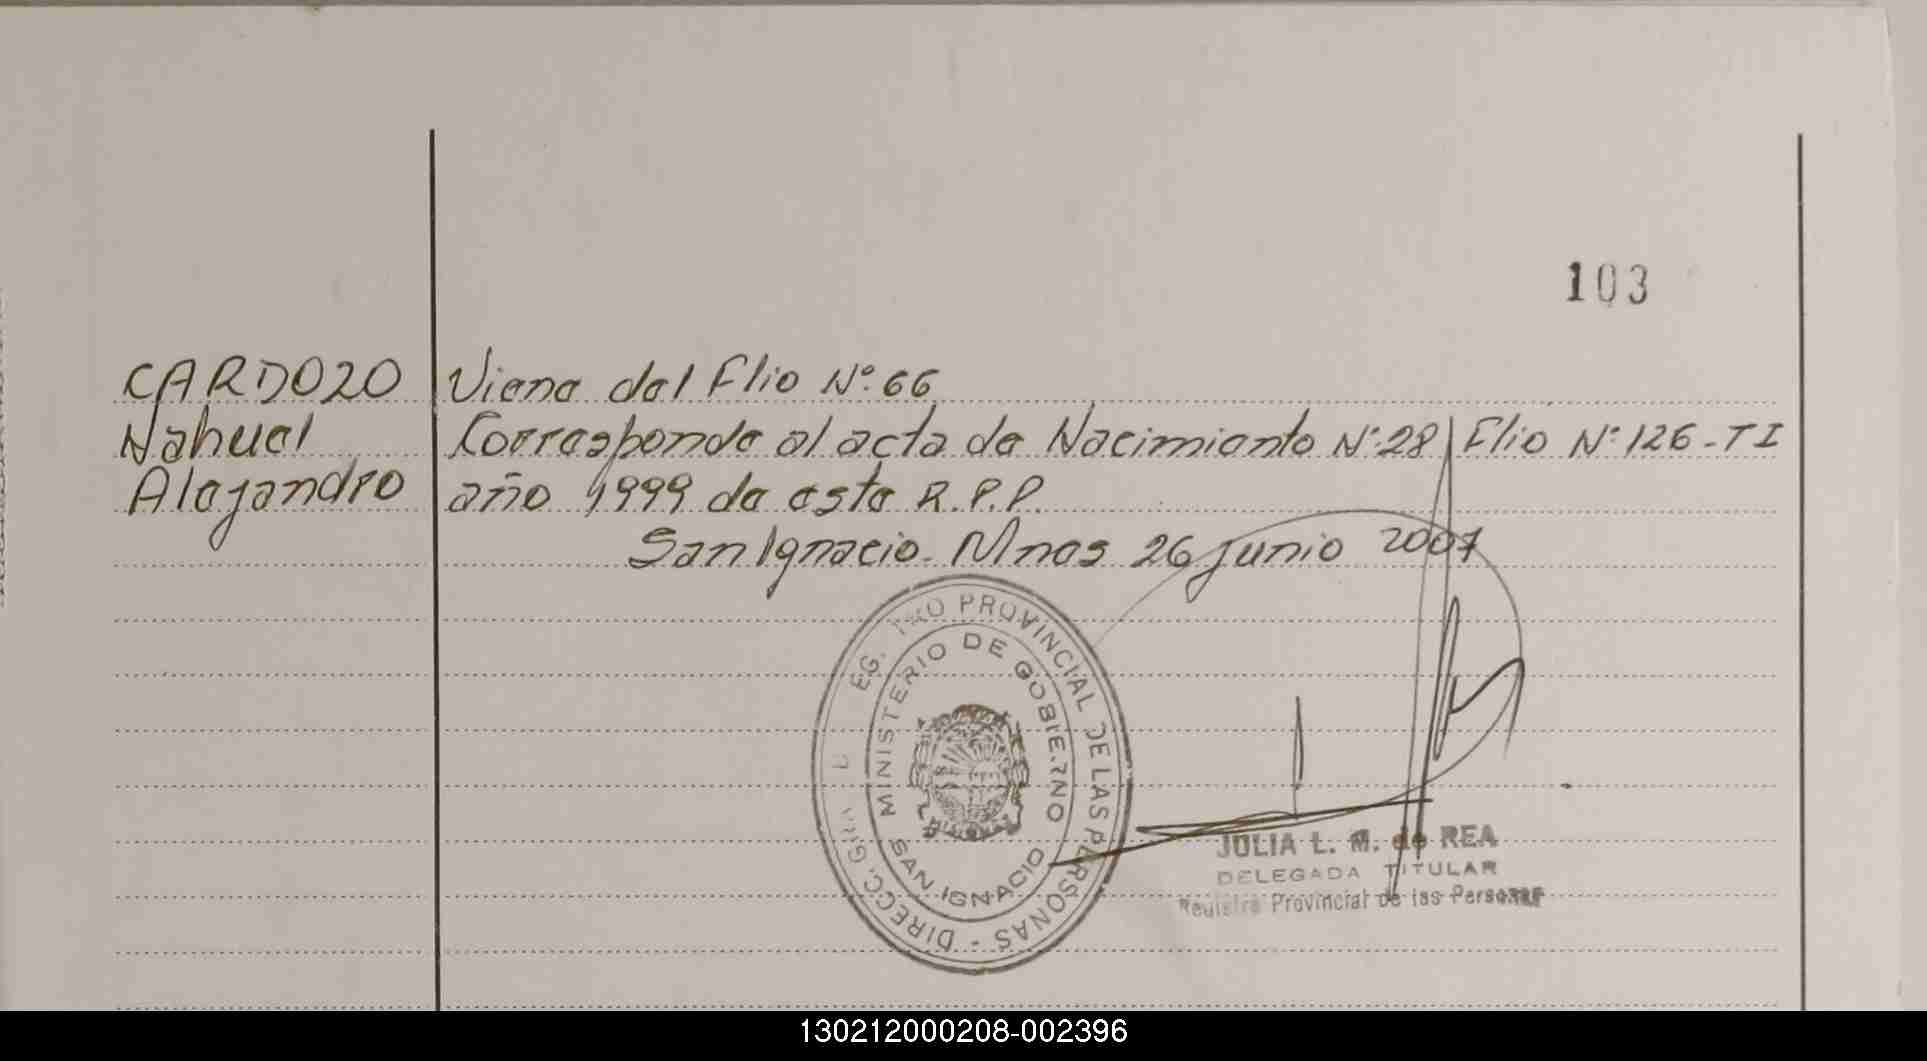 103
CARDOZO
Nahuel
Alejandro
Viene del Flio Nº 66
Corresponde al acta de Nacimiento Nº 28 Flio Nº 126 - TI
año 1999 de este R.P.P.
San Ignacio - Mnes 26 junio 2007
DIRECC. GRAL D EG. TRO PROVINCIAL DE LAS PERSONAS -
MINISTERIO DE GOBIERNO
SAN IGNACIO
JULIA L. M. de REA
DELEGADA TITULAR
Registro Provincial de las Personas
130212000208-002396